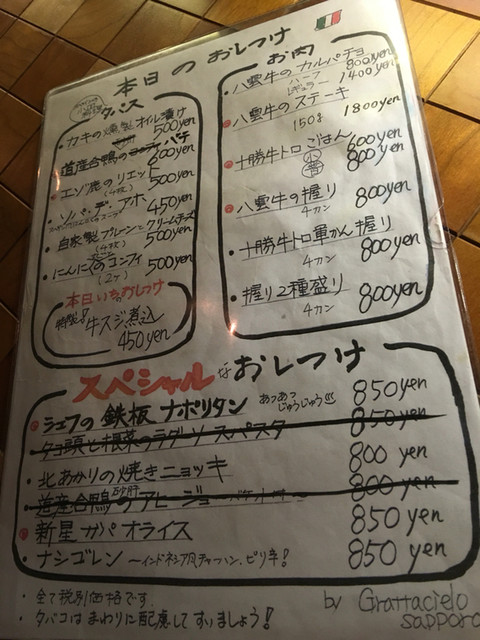 本日のおしつけ
タパス
・カキの燻製オイル漬け 500yen
・道産合鴨のパテ 600yen
・エゾ鹿のリエット 500yen
(4枚)
・ソパ・デ・アホ 450yen
・自家製プルーンとクリームチーズ 500yen
(4枚)
・にんにくのコンフィ 500yen
(2ケ)
本日いちおしつけ
特製!牛スジ煮込
450yen
お肉
・八雲牛のカルパチョ
ハーフ 800yen
レギュラー 1400yen
・八雲牛のステーキ
150g 1800yen
・十勝牛トロごはん
小 600yen
普 800yen
・八雲牛の握り 800yen
4カン
・十勝牛トロ軍かん握り 800yen
4カン
・握り2種盛り 800yen
4カン
スペシャルなおしつけ
・シェフの鉄板ナポリタン あつあつじゅうじゅう 850yen
・タコ頭と根菜のラグーソースパスタ 850yen
・北あかりの焼きニョッキ 800yen
・道産合鴨砂肝のアヒージョ 800yen
・新星ガパオライス 850yen
・ナシゴレン〜インドネシア風チャーハン、ピリ辛! 850yen
・全て税別価格です
・タバコはまわりに配慮してすいましょう!
by Grattacielo
sapporo